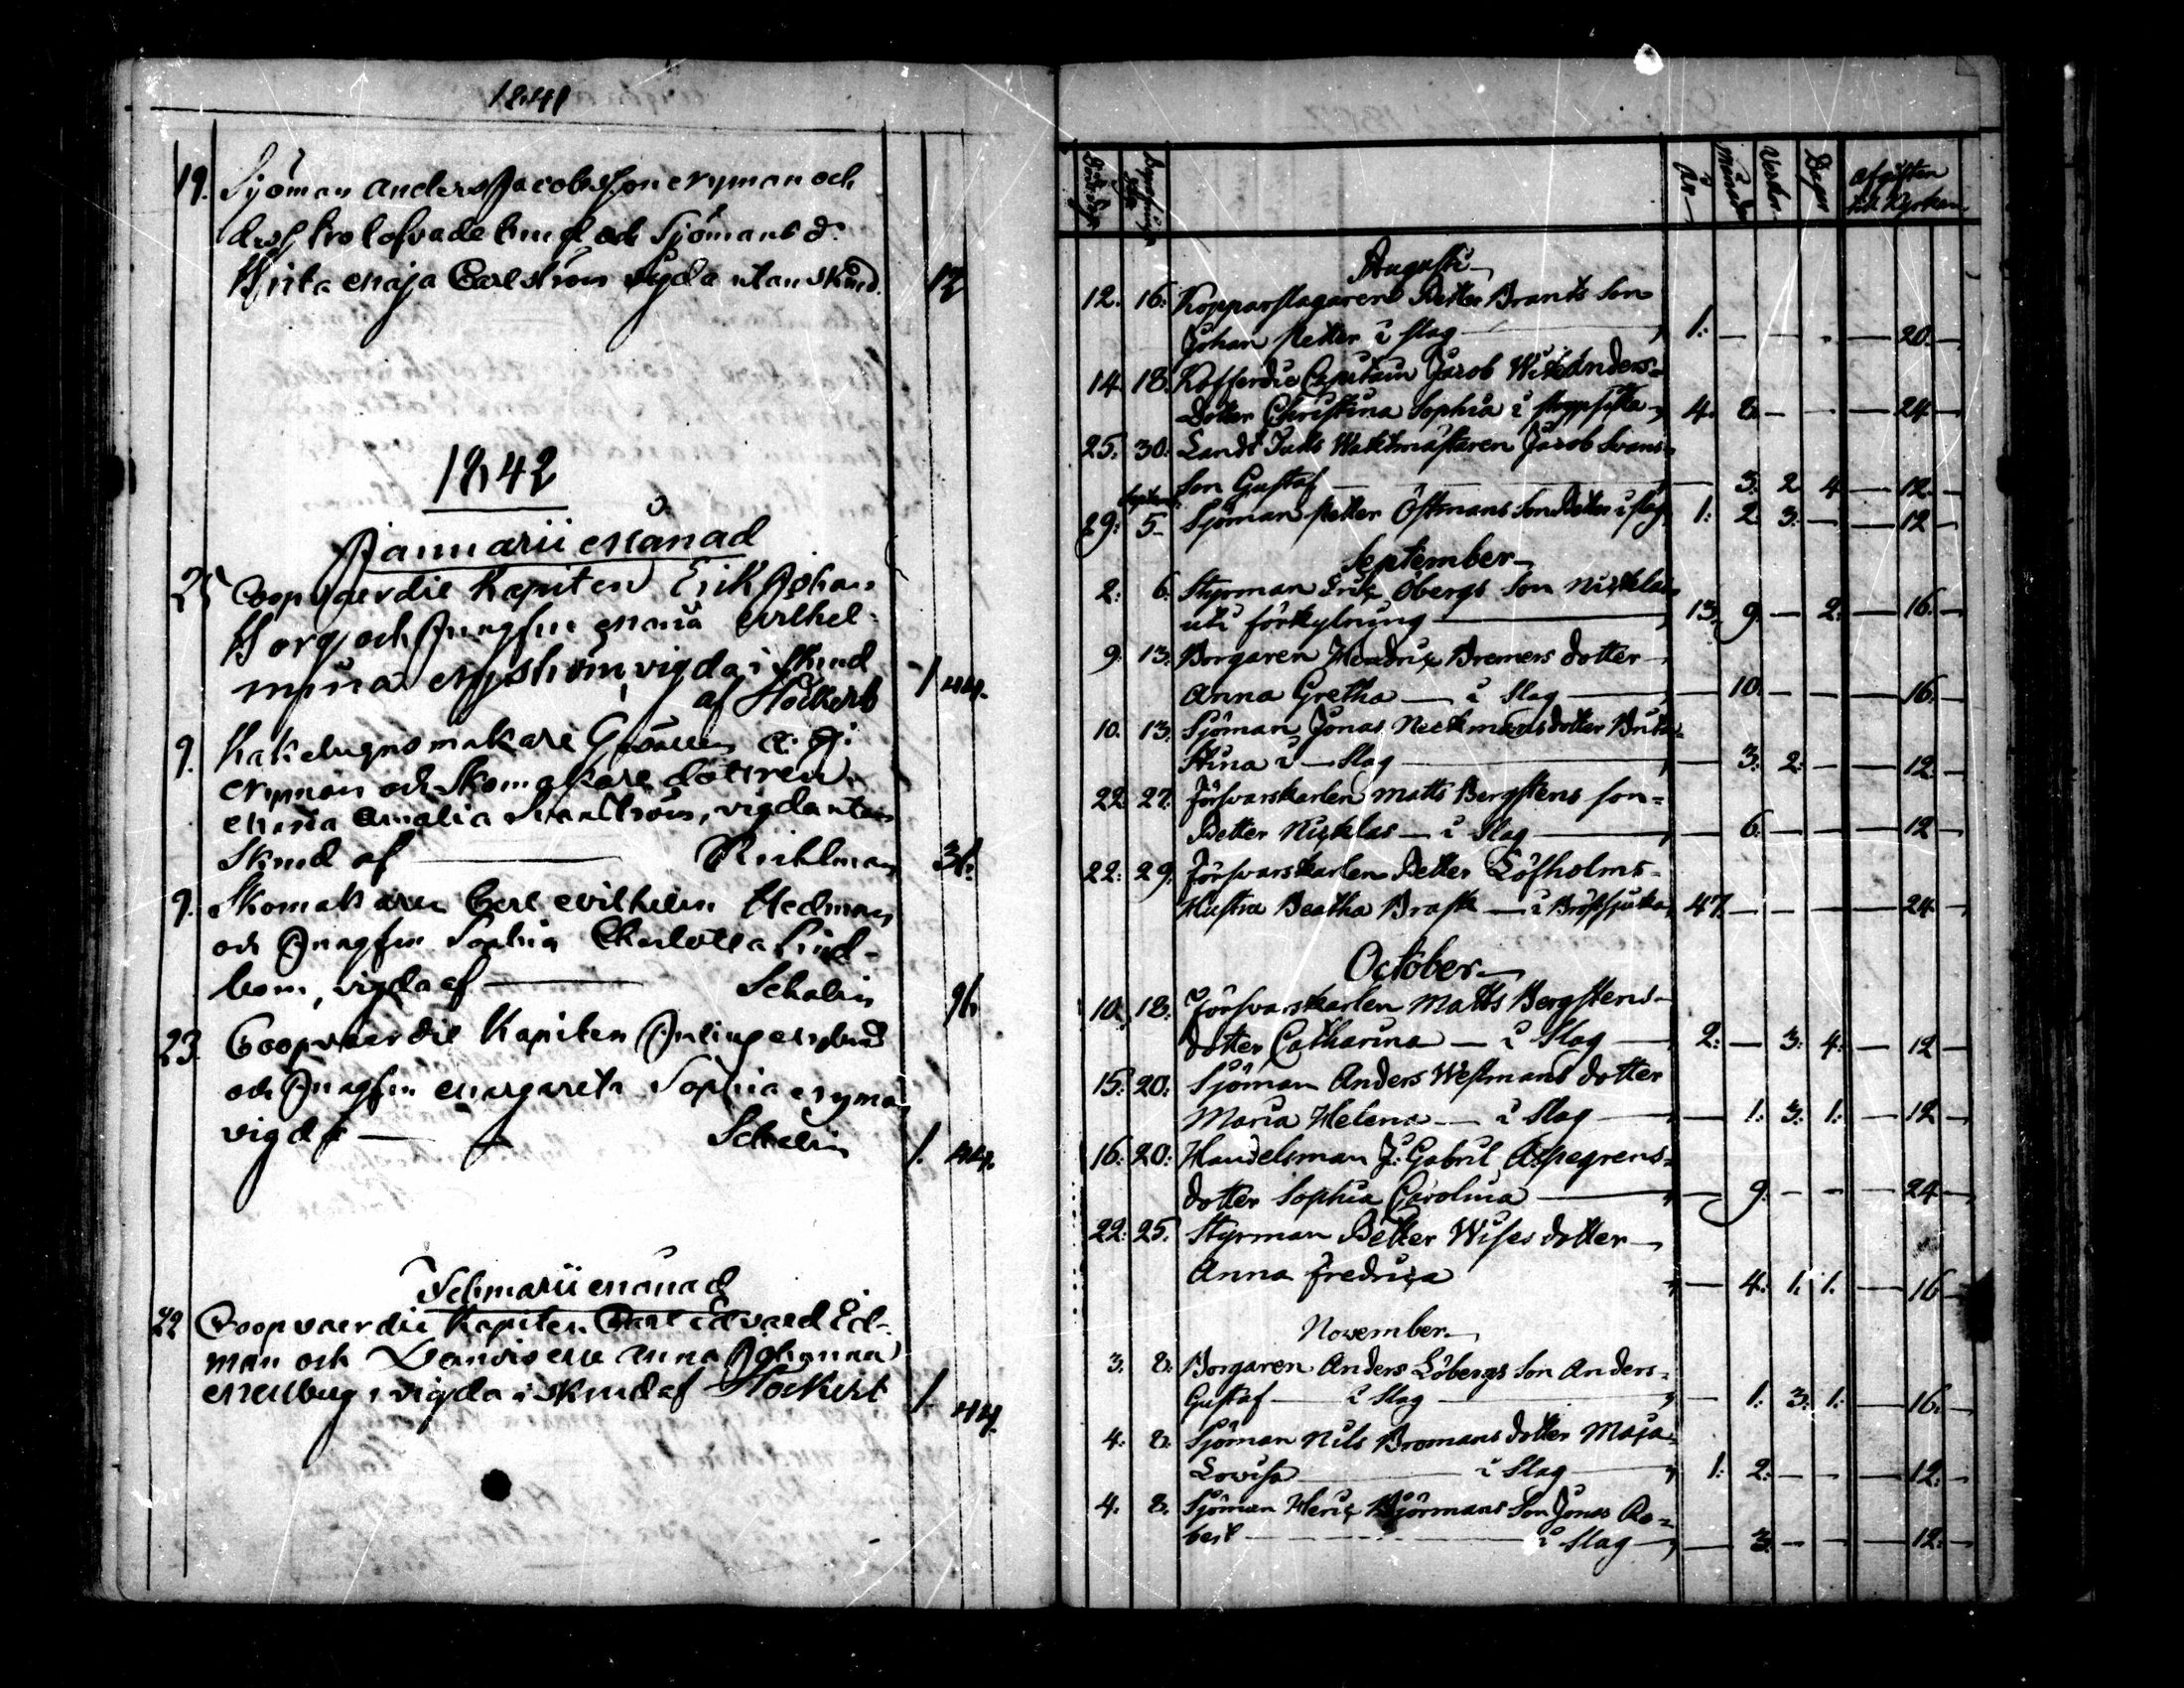 1841
19. Sjöman Anders Jacobsson Nyman och
dess trolofvade brud och Sjömans d:
Brita Maja Carlström vigda utan Skrud. 12
1842
Januarii Månad
25 Coopvaerdie Kapiten Erik Johan
Borg och Jungfru Maria Wilhel-
mina Nyström, vigda i Skrud
af Höckert 1 44.
9. Kakelugnsmakare Gesällen A. J.
Nyman och Skomakare dottren
Maria Amalia Svanström, vigda utan
Skrud af — Richman 36.
9. Skomakaren Carl Wilhelm Hedman
och Jungfru Sophia Charlotta Lind-
bom, vigda af — Schalin 96
23. Coopvaerdie Kapiten
och Jungfru Margareta Sophia Nyman
vigda — Schalin 1. 44.
Februarii Månad
22 Coopvaerdie Kapiten Carl Edvard Ed-
man och Demoiselle Anna Johanna
vigda i Skrud af Höckert 1. 44.
År Månader Veckor Dagar Afgiften till Kyrkan
Augusti
12. 16. Kopparslagaren Petter Brants Son
Johan Petter i Slag — 1: — — — 20. —
14. 18. Kofferdie Capitain Jacob Wikanders-
Dotter Christina Sophia i 4. 8. — — — 24 —
25. 30. Landt Tulls Waktmästaren Jacob Svans-
Son Gustaf — 3. 2. 4 — 12. —
September
29: 5. Sjöman Petter Östmans Son Petter i slag 1: 2. 3: — — 12 —
September
2: 6. Styrman Eric Öbergs Son Nicklas
uti förkylning — 13. 9. — 2: — 16. —
9. 13. Borgaren Hendric Bremers dotter
Anna Gretha — i Slag — — 10. — — — 16. —
10. 13. Sjöman Jonas Neckmans dotter Brita
Stina i — Slag — — 3: 2: — — 12. —
22. 27. Försvarskarlen Matts Bergstens son-
Petter Nicklas — i Slag — — 6. — — — 12 —
22: 29. Försvarskarlen Petter Löfholms-
Hustru Beatha Brask — i Bröstsjuka 47. — — — — 24 —
October
10. 18. Försvarskarlen Matts Bergstens-
dotter Catharina — i Slag — 2: — 3: 4: — 12 —
15: 20: Sjöman Anders Westmans dotter
Maria Helena — i Slag — — 1: 3: 1: — 12 —
16: 20: Handelsman J: Gabriel Aspegrens-
dotter Sophia Carolina — — 9. — — — 24 —
22: 25. Styrman Petter Wises dotter
Anna Fredrica — 4: 1: 1: — 16 —
November
3: 8: Borgaren Anders Löbergs Son Anders-
Gustaf — i Slag — — 1: 3: 1: — 16. —
4: 8: Sjöman Nils Bromans dotter Maja
Lovisa — i Slag — 1: 2: — — — 12: —
4. 8. Sjöman Heric Björmans Son Jonas Ro-
bert — i Slag — — 3. — — — 12: —